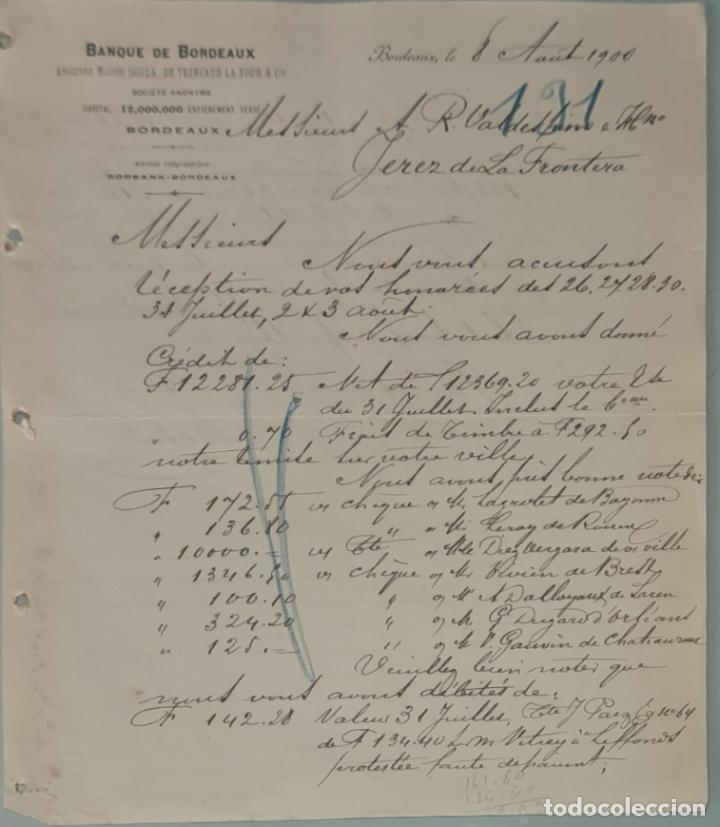 BANQUE DE BORDEAUX
ANCIENNE MAISON SOULA, DE TRINCAUD LA TOUR & Cie
SOCIÉTÉ ANONYME
CAPITAL 12,000,000 ENTIÈREMENT VERSÉ
BORDEAUX
Adresse télégraphique:
BORBANK-BORDEAUX
Bordeaux, le 8 Août 1900
131
Messieurs A. R. Valdespino & Hno
Jerez de La Frontera
Messieurs
Nous vous accusons
réception de vos honorées des 26. 27. 28. 30.
31 Juillet, 2 & 3 août.
Nous vous avons donné
Crédit de:
F 12281.25 Net de f 12369.20 votre Rse
du 31 Juillet. Inclus le Beau.
" 0.70 Frais de Timbre à F 292.50
notre remise sur votre ville
Nous avons pris bonne note de:
F 172.55 vs chèque o/ Mr Lagrolet de Bayonne
" 136.80 " " o/ Mr Leroy de Rouen
" 10000.= vs Tte o/ Mle Diez Vergara de vs ville
" 1346.50 vs chèque o/ Mr Vivien de Brest
" 100.10 " o/ Mr A Dalloyaux de
" 324.20 " o/ M. G Duzard d'Orléans
" 125.= " o/ M V. Gauvin de Chateauroux
Veuillez bien noter que
nous vous avons débités de:
F 142.28 Valeur 31 Juillet, Tte J Paez Eg No 64
de F 134.40 sur Vitrey à Leffonds
protestée faute de paiemt;
141.80
134.60
todocoleccion
todocoleccion.net